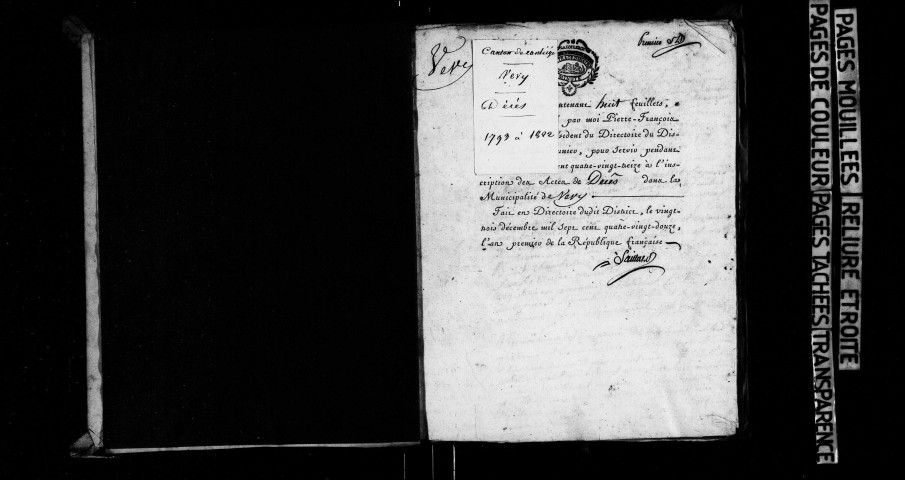 Vevy
premier
Vevy
Décès
1793 à 1802
contenant huit feuillets,
par moi Pierre-François
sident du Directoire du Dis-
nier, pour servir pendant
ent quatre-vingt-treize à l'ins-
cription des Actes de Décès dans la
Municipalité de Vevy
Fait en Directoire dudit District, le vingt-
trois décembre mil sept cent quatre-vingt-douze,
l'an premier de la République française
PAGES MOUILLÉES RELIURE ETROITE
PAGES DE COULEUR PAGES TACHÉES TRANSPARENCE